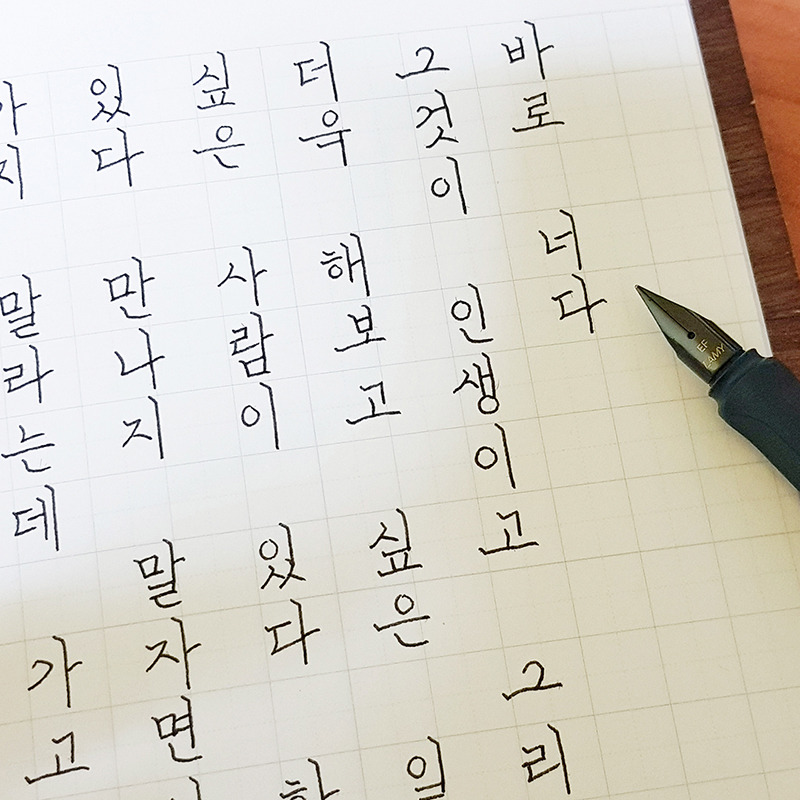 바로 너다
그것이 인생이고 그리
더욱 해보고 싶은 일
싶은 사람이 있다 하
있다 만나지 말자면
가지 말라는데 가고
EF
LAMY